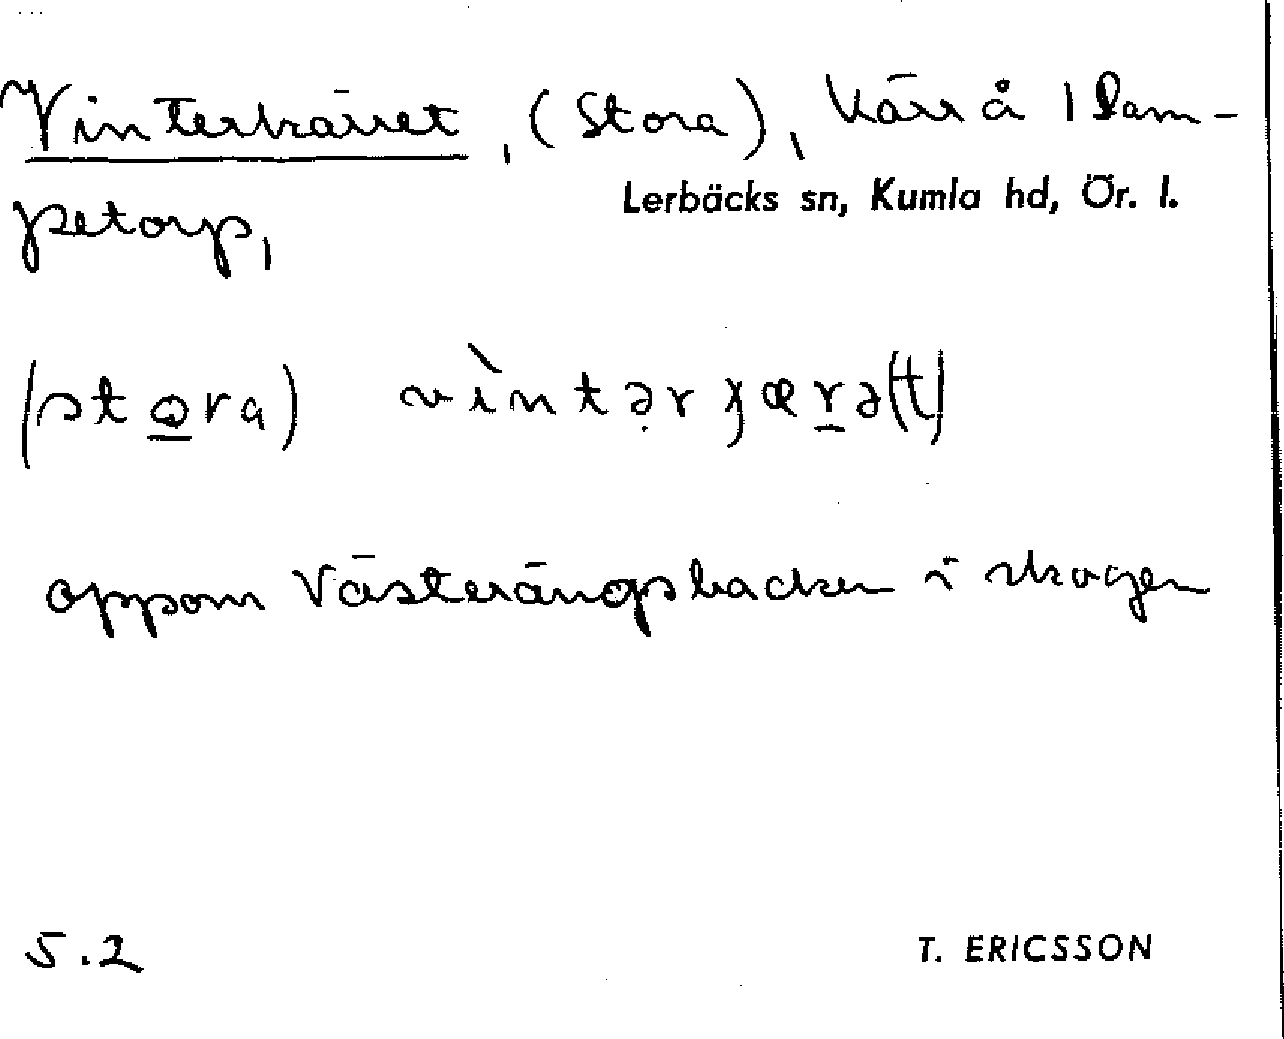 Vinterkärret, (Stora), kärr å 1 Lam-
Lerbäcks sn, Kumla hd, Ör. l.
petorp,
(stora) vìntər ɟærə(t)
oppom Västerängsbacken i skogen
5.2
T. ERICSSON